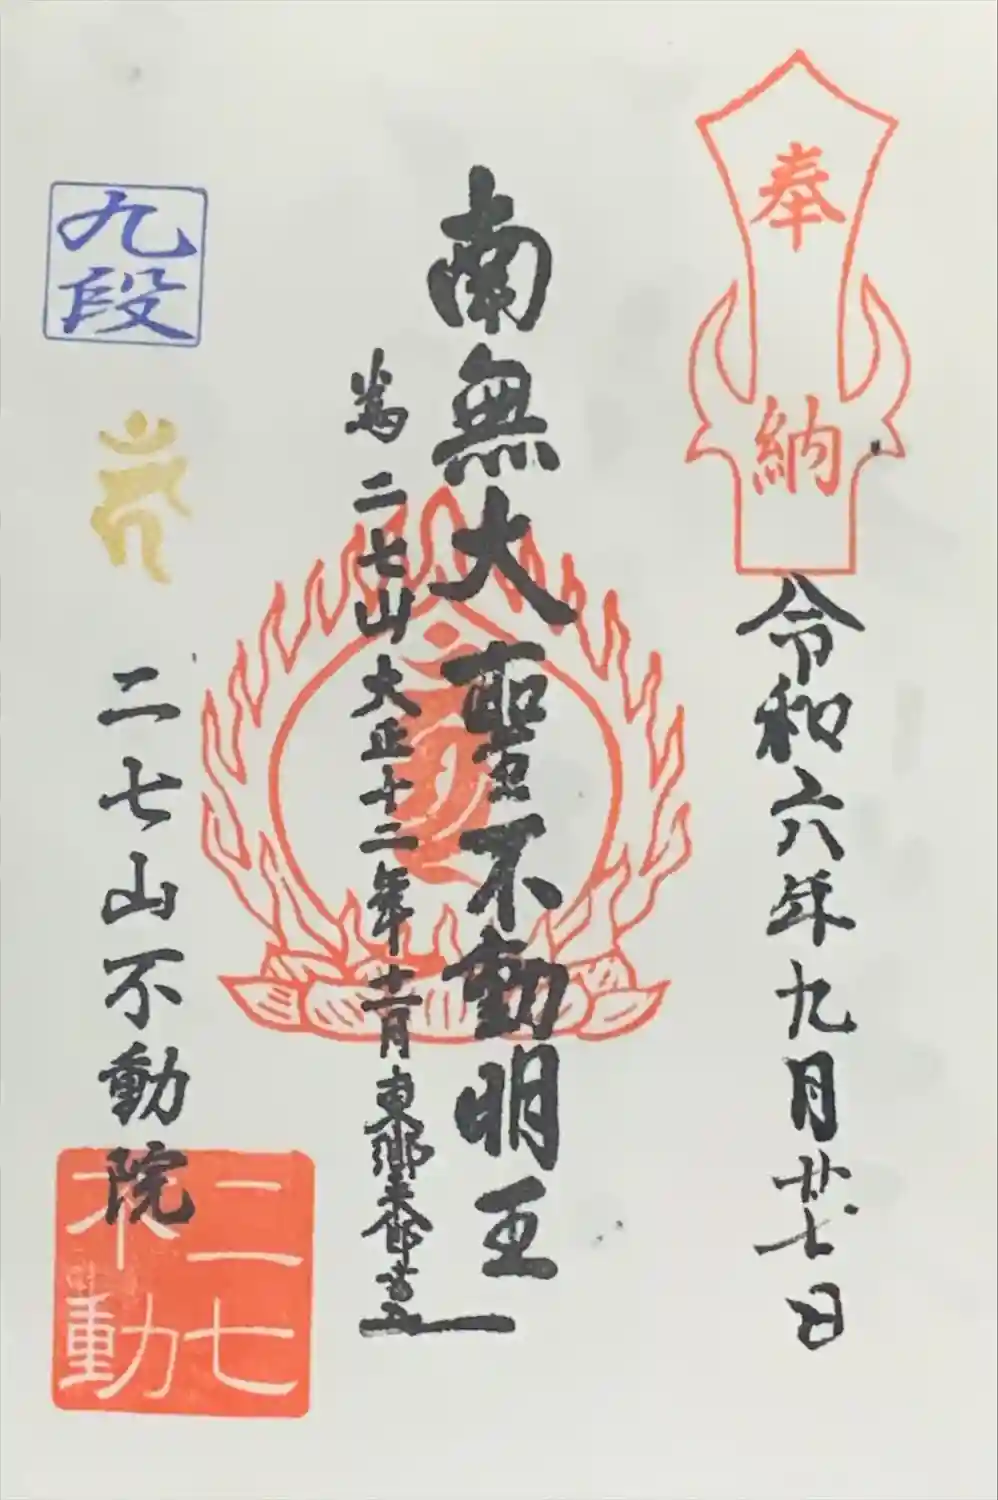 奉納
令和六年九月廿七日
南無大聖不動明王
為二七山大正十二年十二月東郷
九段
二七山不動院
二七不動